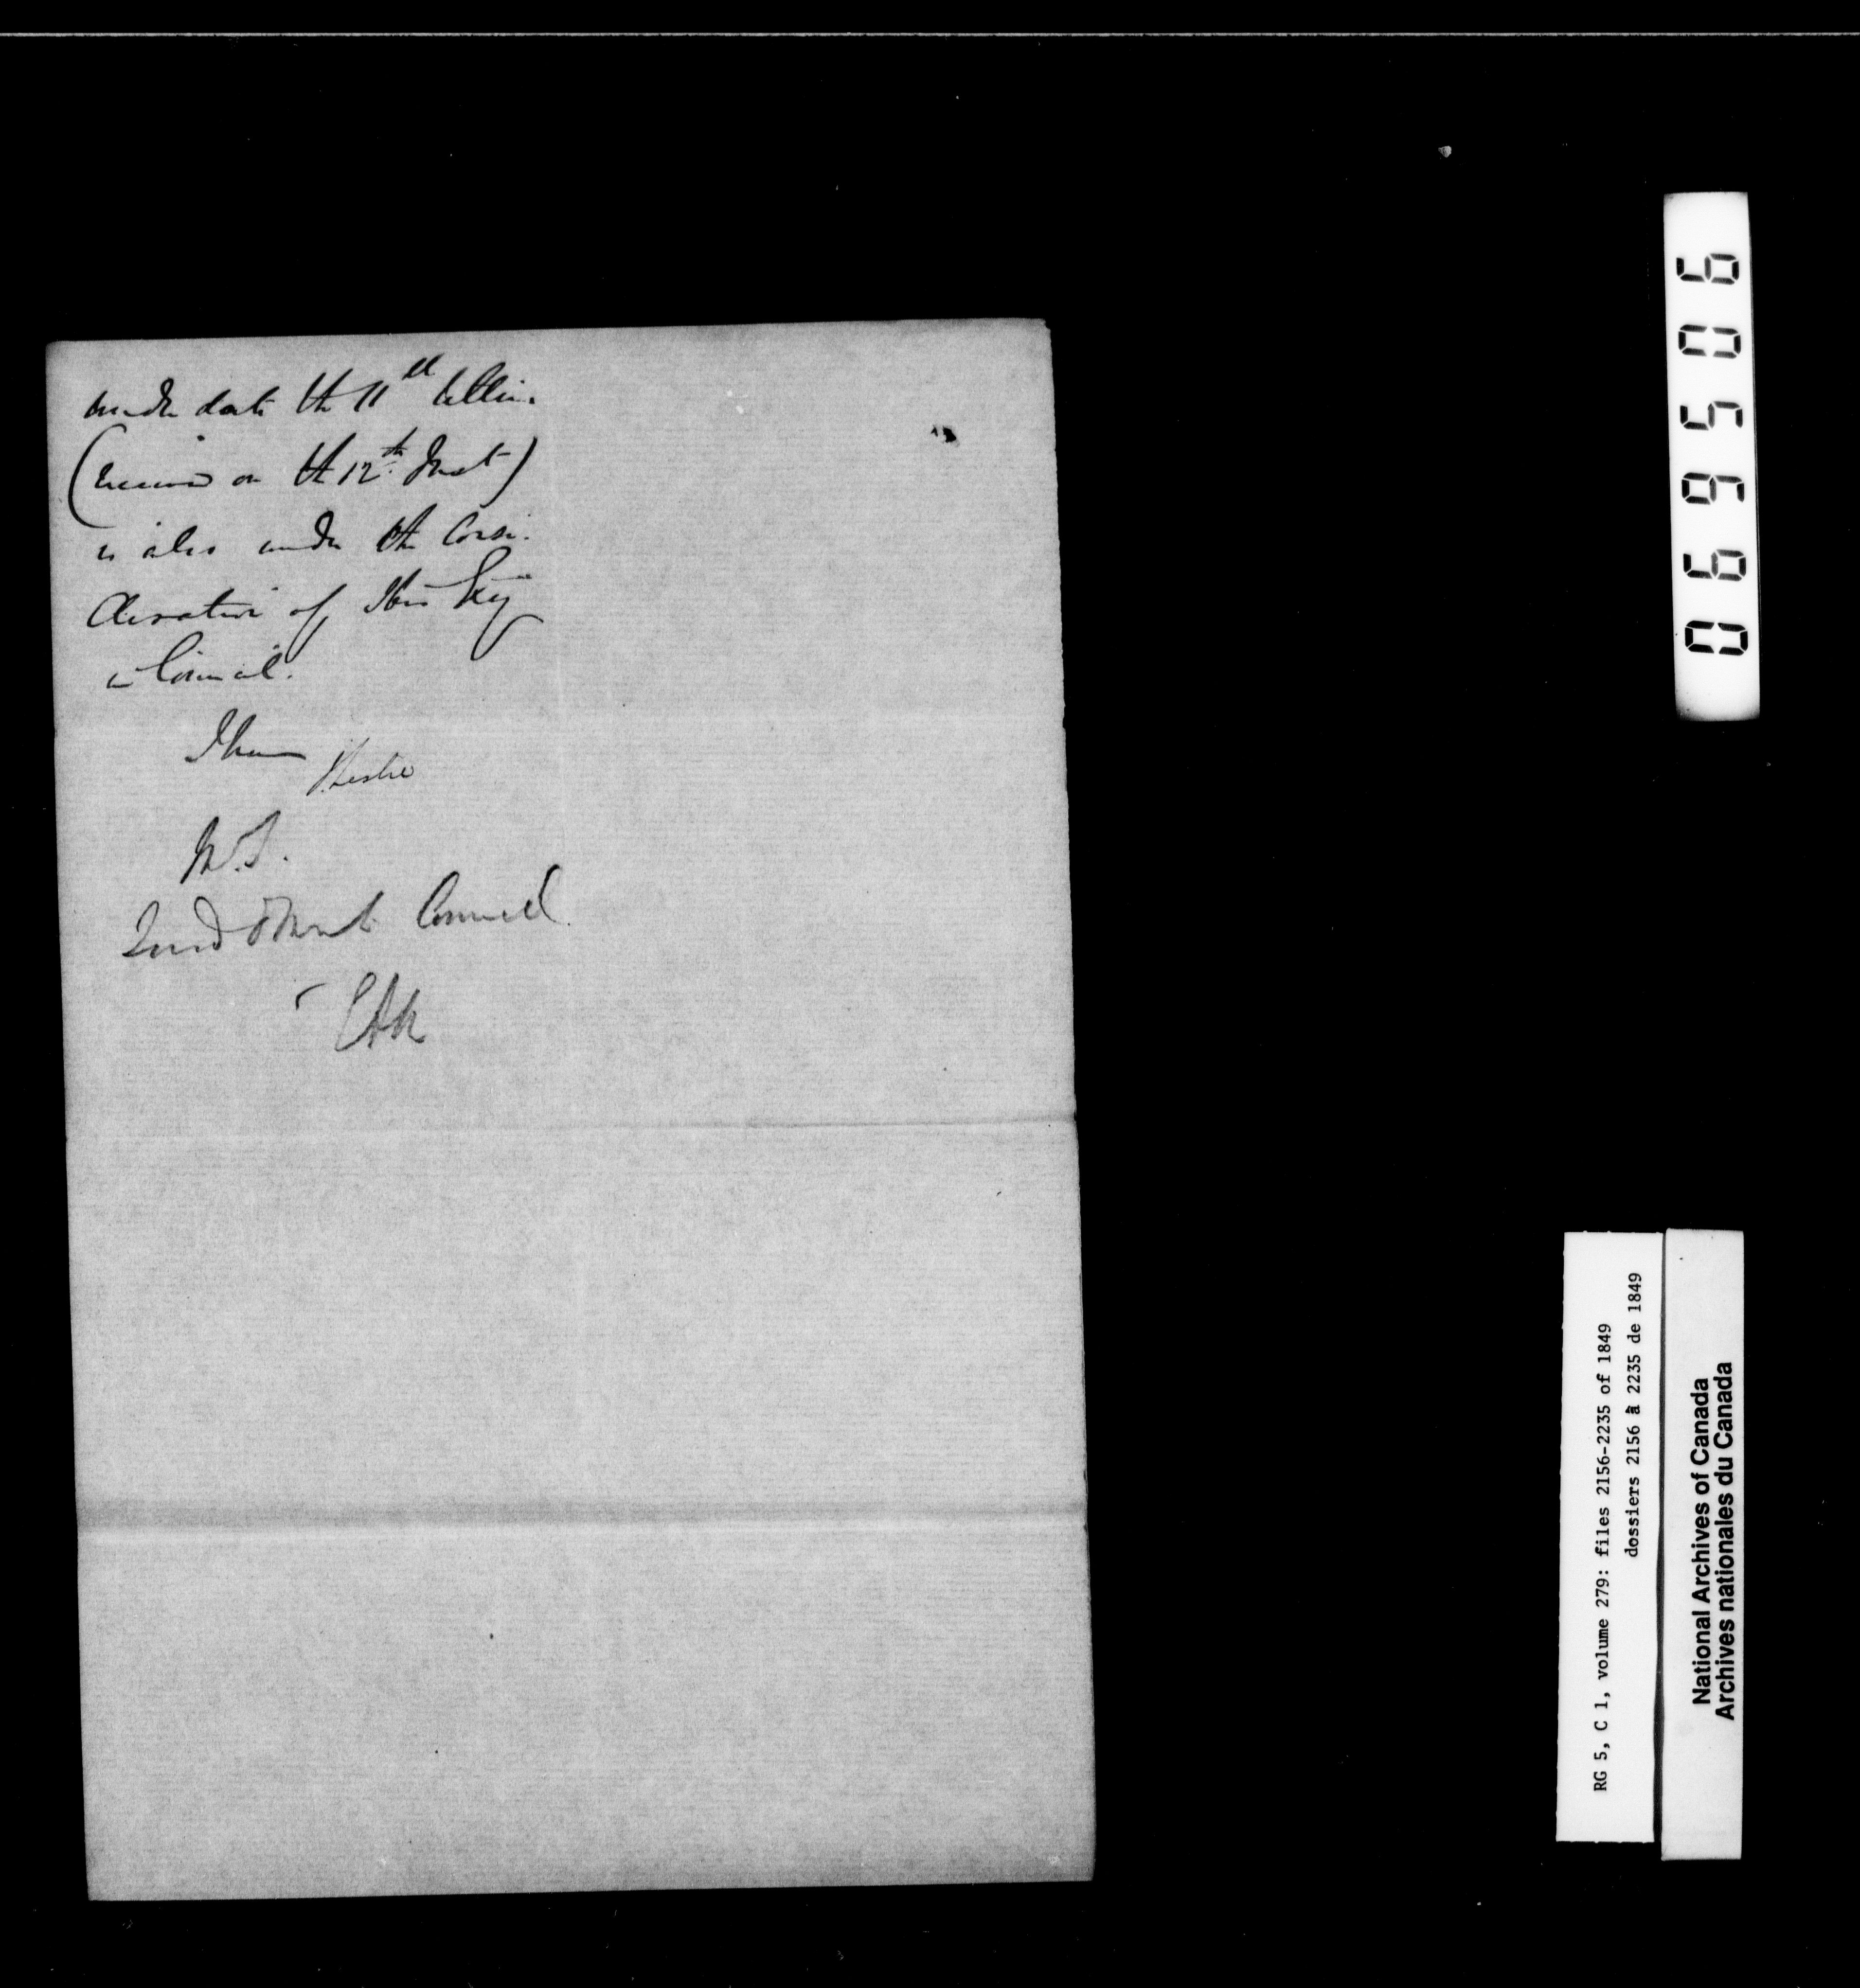 under date the 11th ultim.
(received on the 12th Inst)
is also under the Consi-
deration of His Exy
in Council.
I have
J Leslie
Council
069506
RG 5, C 1, volume 279: files 2156-2235 of 1849
dossiers 2156 à 2235 de 1849
National Archives of Canada
Archives nationales du Canada